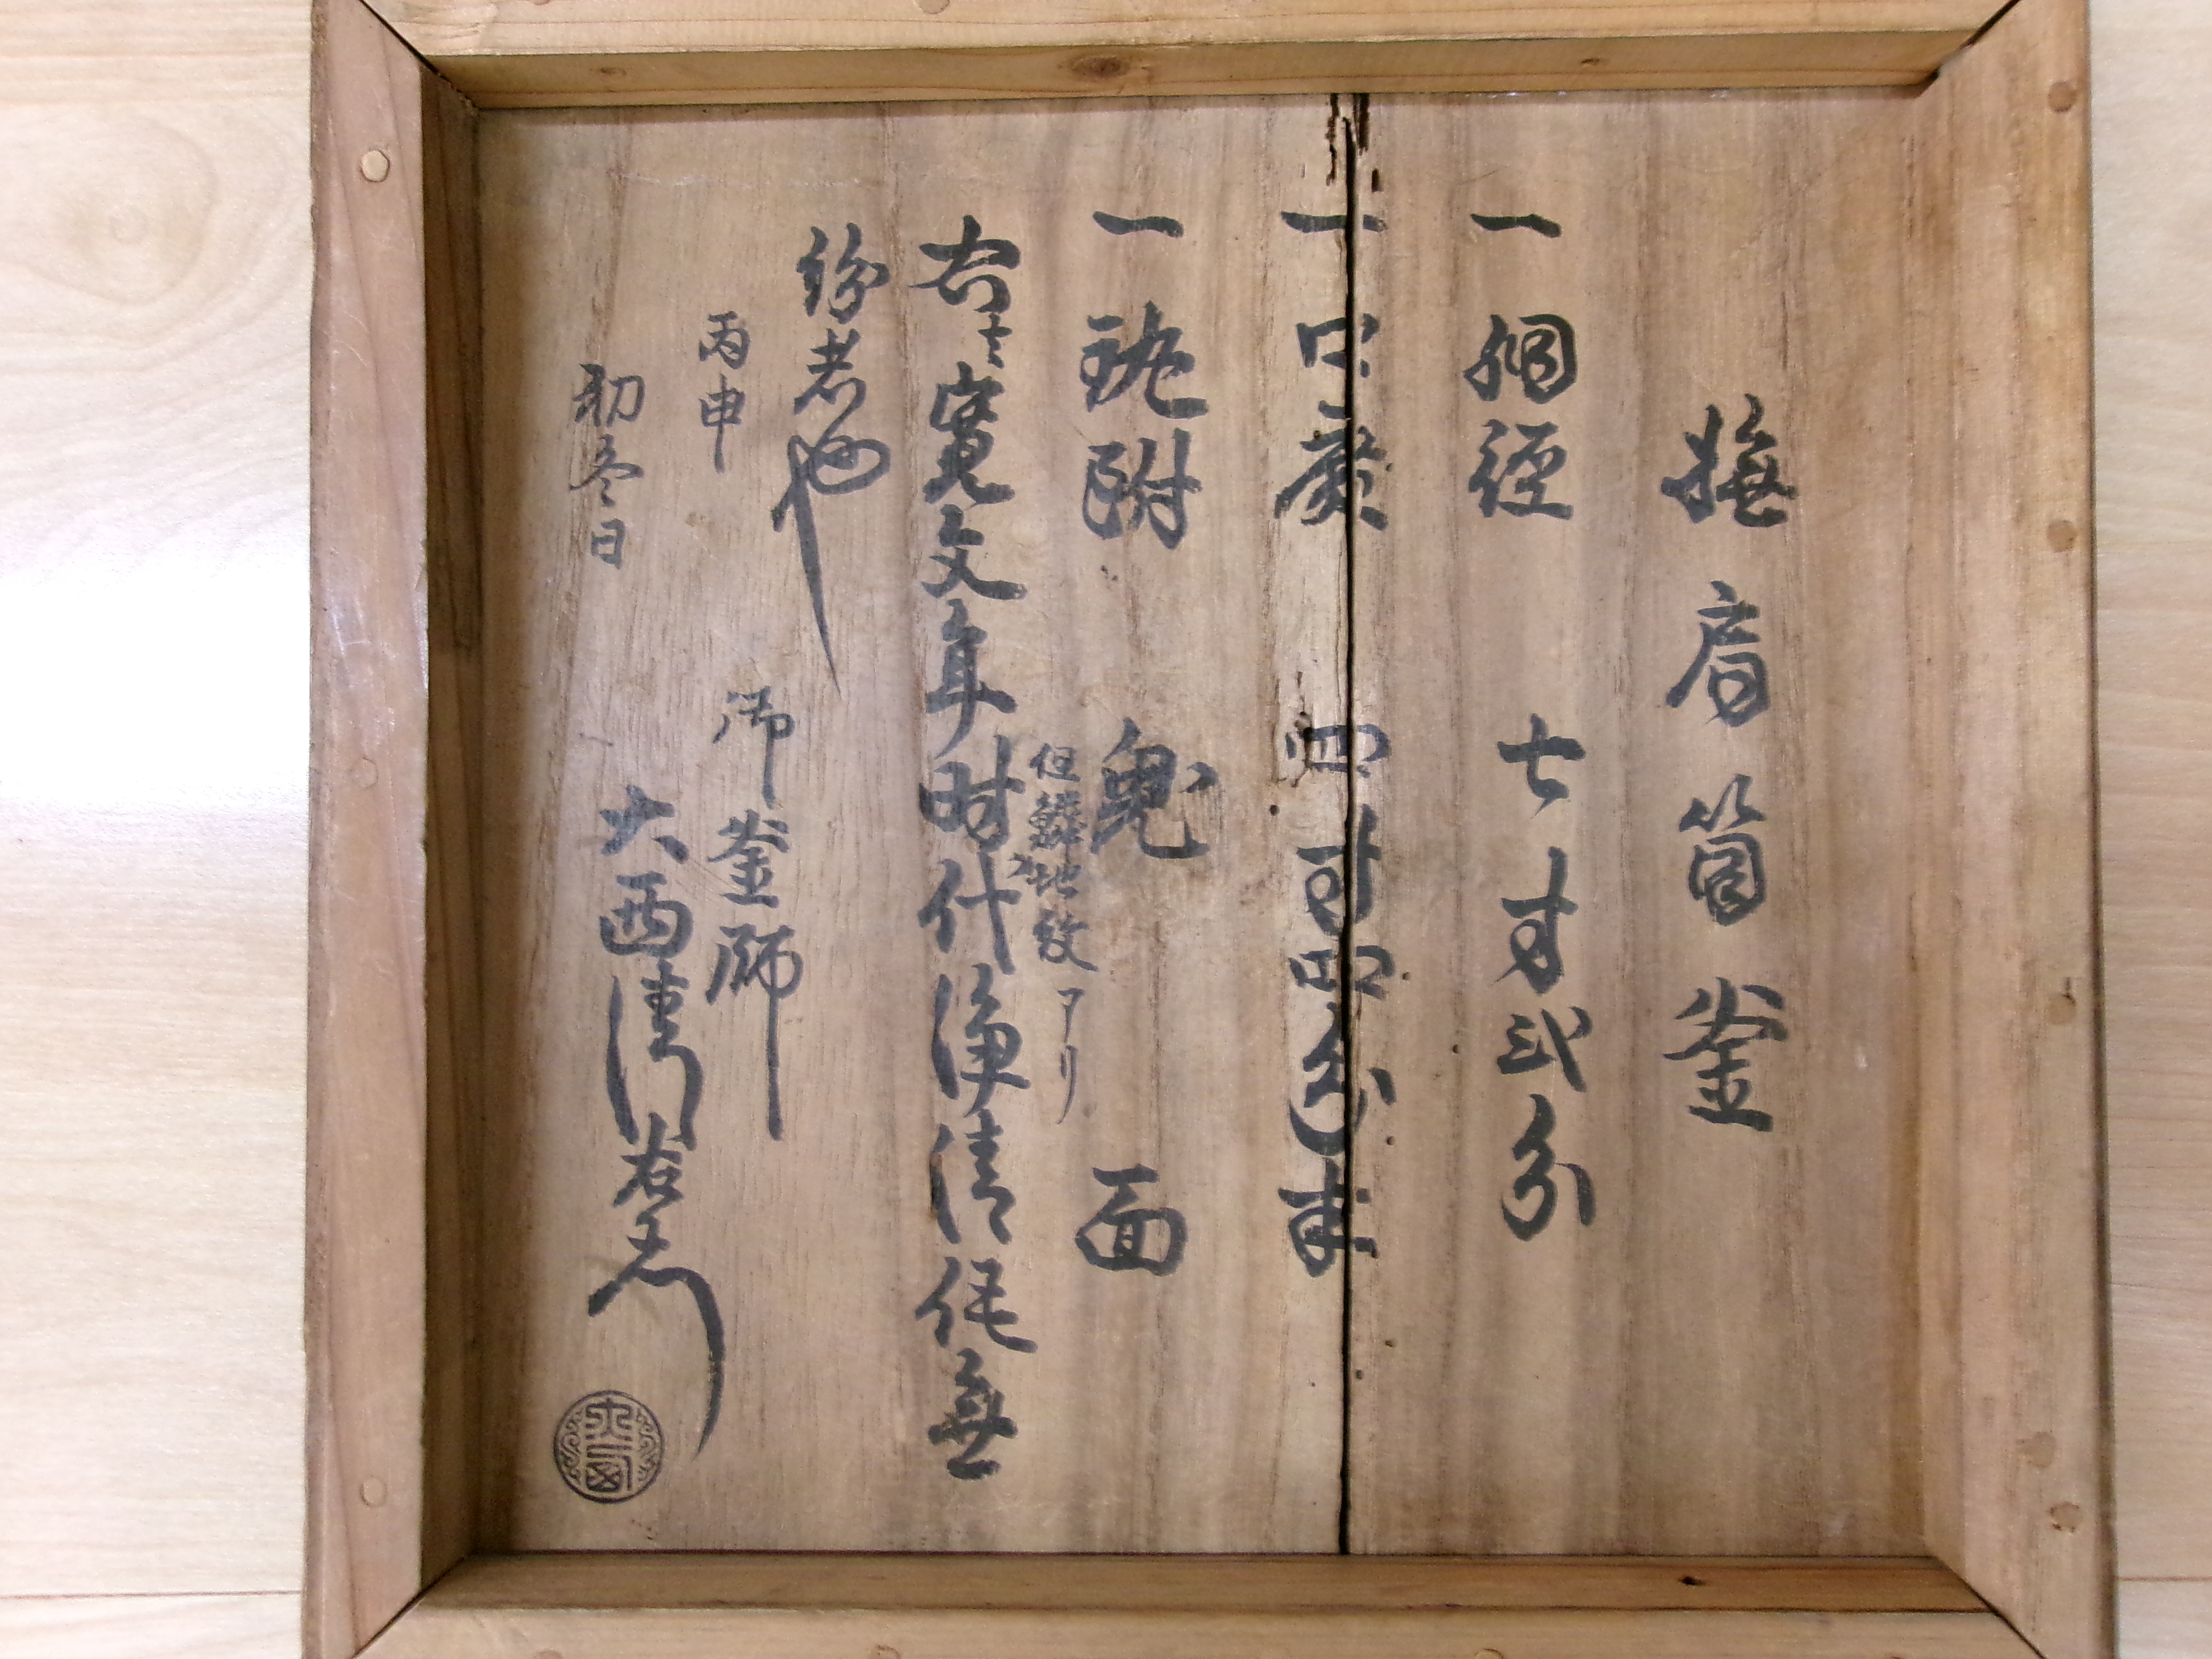 撫肩筒釜
一胴径 七寸弐分
一口廣 四寸四分半
一鐶附 鬼面
但鱗地紋アリ
右者寛文年時代浄清作無
紛者也
丙申
初冬日
御釜師
大西清右衛門
大西